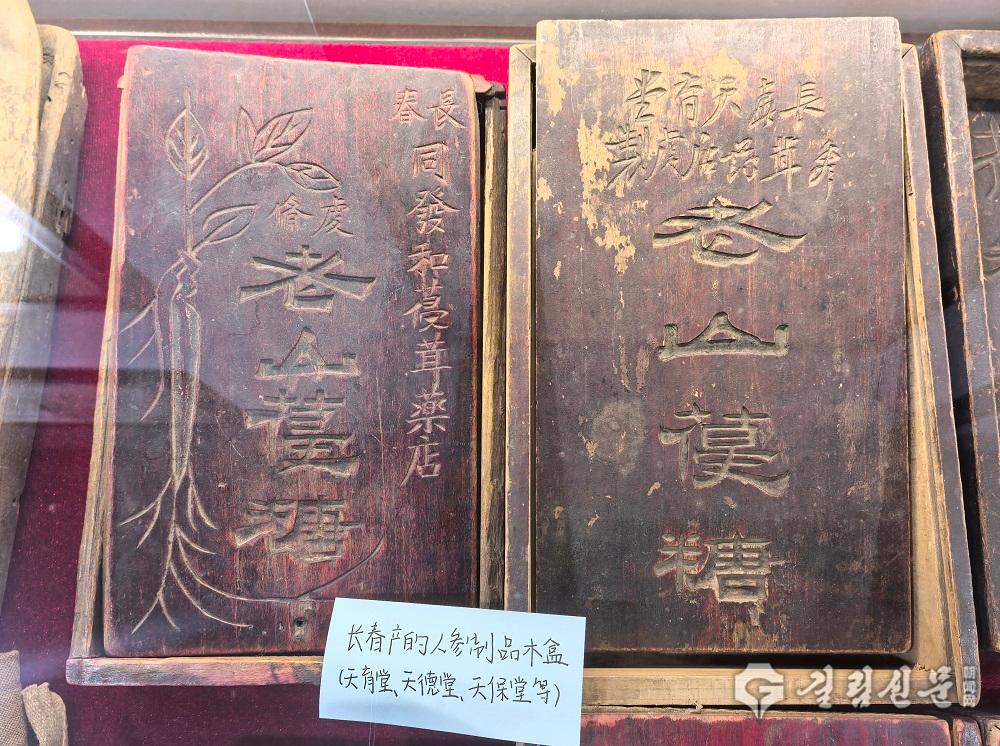 長春
同發和葠茸藥店
虔脩
老山葠糖
長春天育堂
參茸店虔製
老山葠糖
长春产的人参制品木盒
(天育堂、天德堂、天保堂等)
길림신문
朝闻网